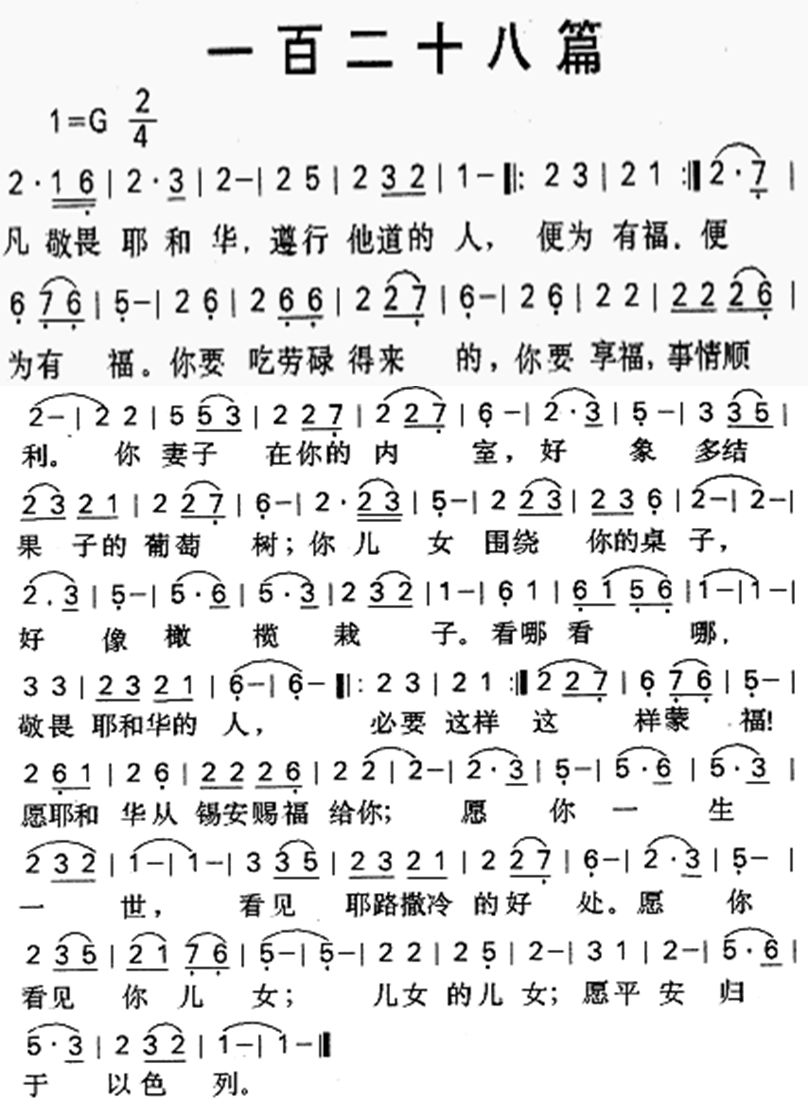 一百二十八篇
1=G 2/4
2·1 6 | 2·3 | 2-| 2 5 | 2 3 2 | 1-‖: 2 3 | 2 1 :‖ 2·7 |
凡敬畏耶和华,遵行他道的人,便为有福.便
6 7 6 | 5-| 2 6 | 2 6 6 | 2 2 7 | 6-| 2 6 | 2 2 | 2 2 2 6 |
为有福。你要吃劳碌得来的,你要享福,事情顺
2-| 2 2 | 5 5 3 | 2 2 7 | 2 2 7 | 6-| 2·3 | 5-| 3 3 5 |
利。你妻子在你的内室,好象多结
2 3 2 1 | 2 2 7 | 6-| 2·2 3 | 5-| 2 2 3 | 2 3 6 | 2-| 2-|
果子的葡萄树;你儿女围绕你的桌子,
2.3 | 5-| 5·6 | 5·3 | 2 3 2 | 1-| 6 1 | 6 1 5 6 | 1-| 1-|
好像橄榄栽子。看哪看哪,
3 3 | 2 3 2 1 | 6-| 6-‖: 2 3 | 2 1 :‖ 2 2 7 | 6 7 6 | 5-|
敬畏耶和华的人,必要这样这样蒙福!
2 6 1 | 2 6 | 2 2 2 6 | 2 2 | 2-| 2·3 | 5-| 5·6 | 5·3 |
愿耶和华从锡安赐福给你;愿你一生
2 3 2 | 1-| 1-| 3 3 5 | 2 3 2 1 | 2 2 7 | 6-| 2·3 | 5-|
一世,看见耶路撒冷的好处。愿你
2 3 5 | 2 1 7 6 | 5-| 5-| 2 2 | 2 5 | 2-| 3 1 | 2-| 5·6 |
看见你儿女;儿女的儿女;愿平安归
5·3 | 2 3 2 | 1-| 1-‖
于以色列。